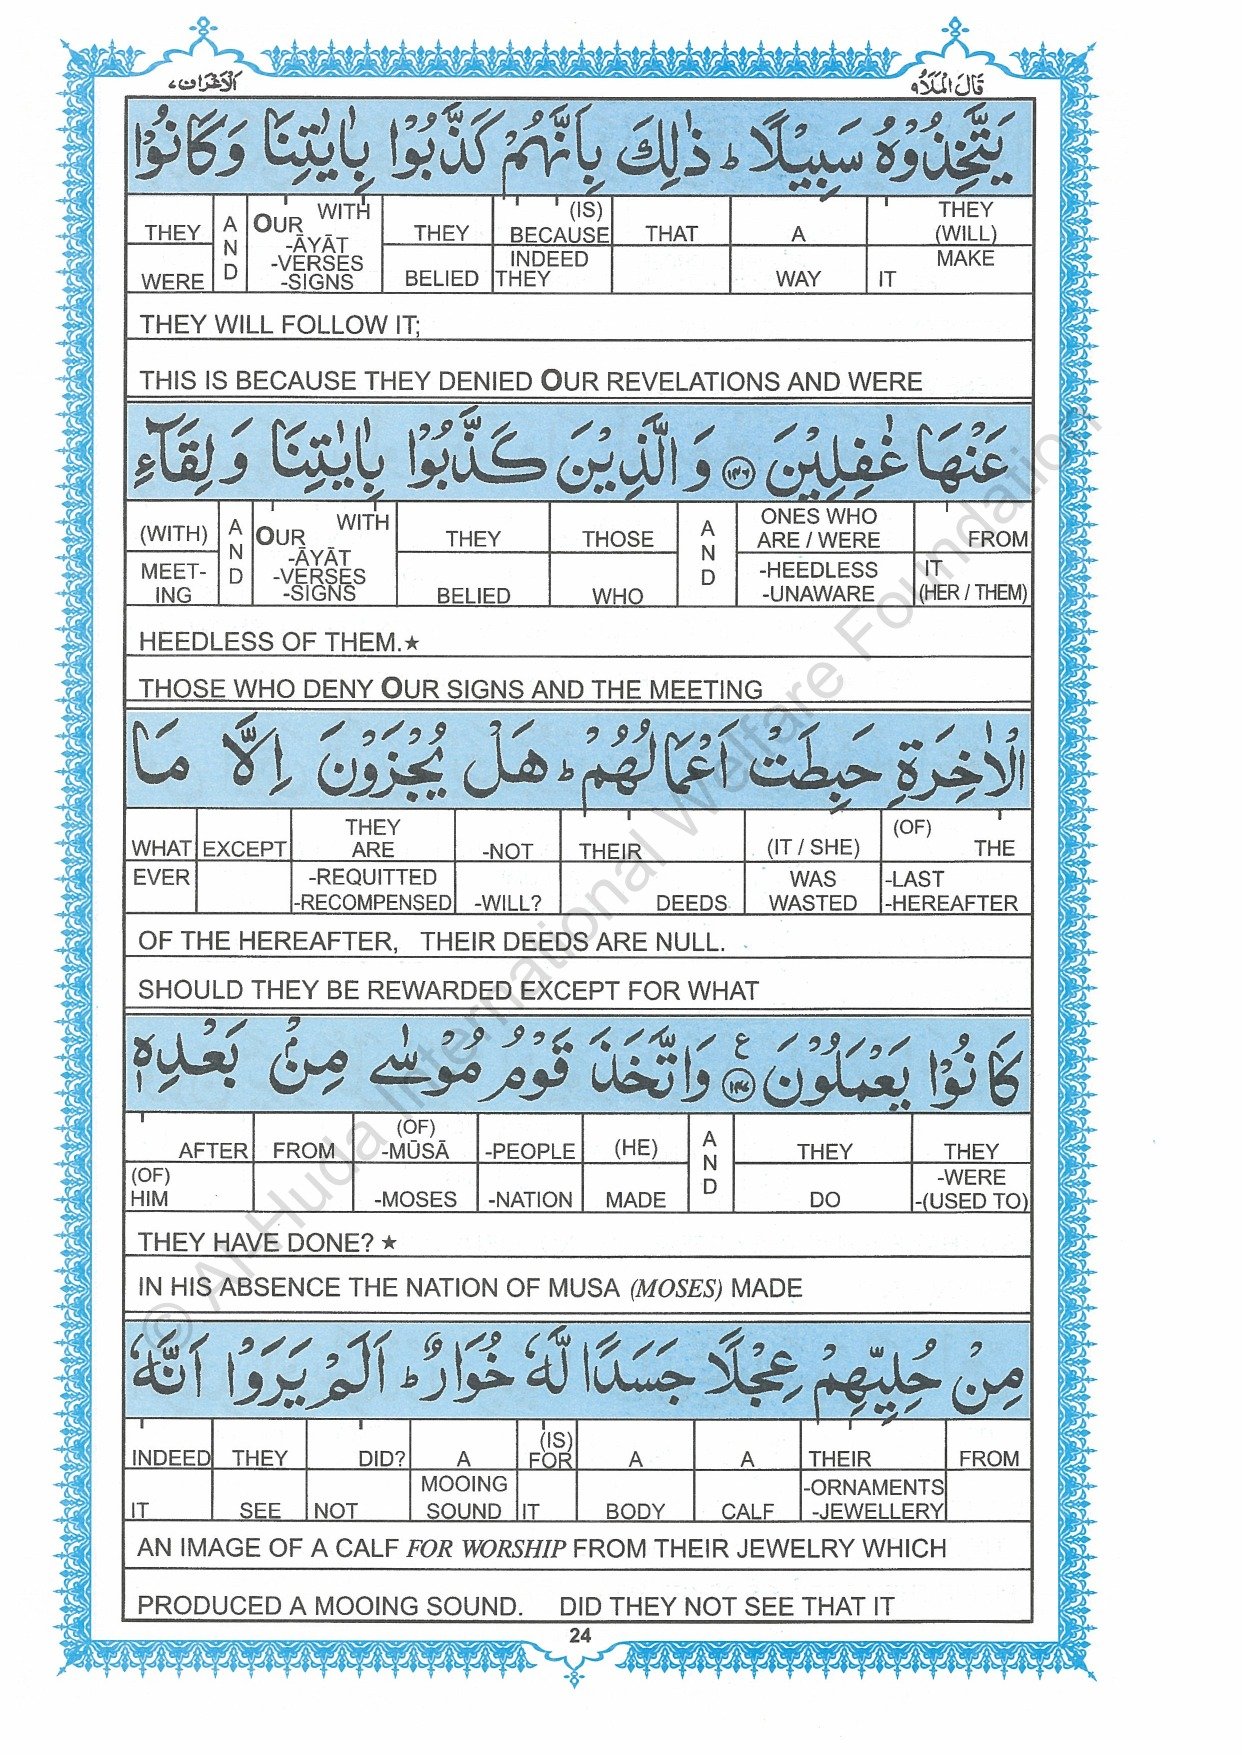 الاعراف ٧
قال الملا ٩
يَتَّخِذُوْهُ سَبِيْلًا ؕ ذٰلِكَ بِاَنَّهُمْ كَذَّبُوْا بِاٰيٰتِنَا وَكَانُوْا
THEY (WILL) MAKE IT
A WAY
THAT
(IS) BECAUSE INDEED THEY
THEY BELIED
WITH OUR -ĀYĀT -VERSES -SIGNS
AND
THEY WERE
THEY WILL FOLLOW IT;
THIS IS BECAUSE THEY DENIED OUR REVELATIONS AND WERE
عَنْهَا غٰفِلِيْنَ ۝١٤٦ وَالَّذِيْنَ كَذَّبُوْا بِاٰيٰتِنَا وَ لِقَآءِ
FROM IT (HER / THEM)
ONES WHO ARE / WERE -HEEDLESS -UNAWARE
AND
THOSE WHO
THEY BELIED
WITH OUR -ĀYĀT -VERSES -SIGNS
AND
(WITH) MEET-ING
HEEDLESS OF THEM.★
THOSE WHO DENY OUR SIGNS AND THE MEETING
الْاٰخِرَةِ حَبِطَتْ اَعْمَالُهُمْ ؕ هَلْ يُجْزَوْنَ اِلَّا مَا
(OF) THE -LAST -HEREAFTER
(IT / SHE) WAS WASTED
THEIR DEEDS
-NOT -WILL?
THEY ARE -REQUITTED -RECOMPENSED
EXCEPT
WHAT EVER
OF THE HEREAFTER, THEIR DEEDS ARE NULL.
SHOULD THEY BE REWARDED EXCEPT FOR WHAT
كَانُوْا يَعْمَلُوْنَ ۝١٤٧ ع وَاتَّخَذَ قَوْمُ مُوْسٰى مِنْۢ بَعْدِهٖ
THEY -WERE -(USED TO)
THEY DO
AND
(HE) MADE
-PEOPLE -NATION
(OF) -MŪSĀ -MOSES
FROM
AFTER (OF) HIM
THEY HAVE DONE? ★
IN HIS ABSENCE THE NATION OF MUSA (MOSES) MADE
مِنْ حُلِيِّهِمْ عِجْلًا جَسَدًا لَّهٗ خُوَارٌ ؕ اَلَمْ يَرَوْا اَنَّهٗ
FROM
THEIR -ORNAMENTS -JEWELLERY
A CALF
A BODY
(IS) FOR IT
A MOOING SOUND
DID? NOT
THEY SEE
INDEED IT
AN IMAGE OF A CALF FOR WORSHIP FROM THEIR JEWELRY WHICH
PRODUCED A MOOING SOUND. DID THEY NOT SEE THAT IT
24
© Al-Huda International Welfare Foundation